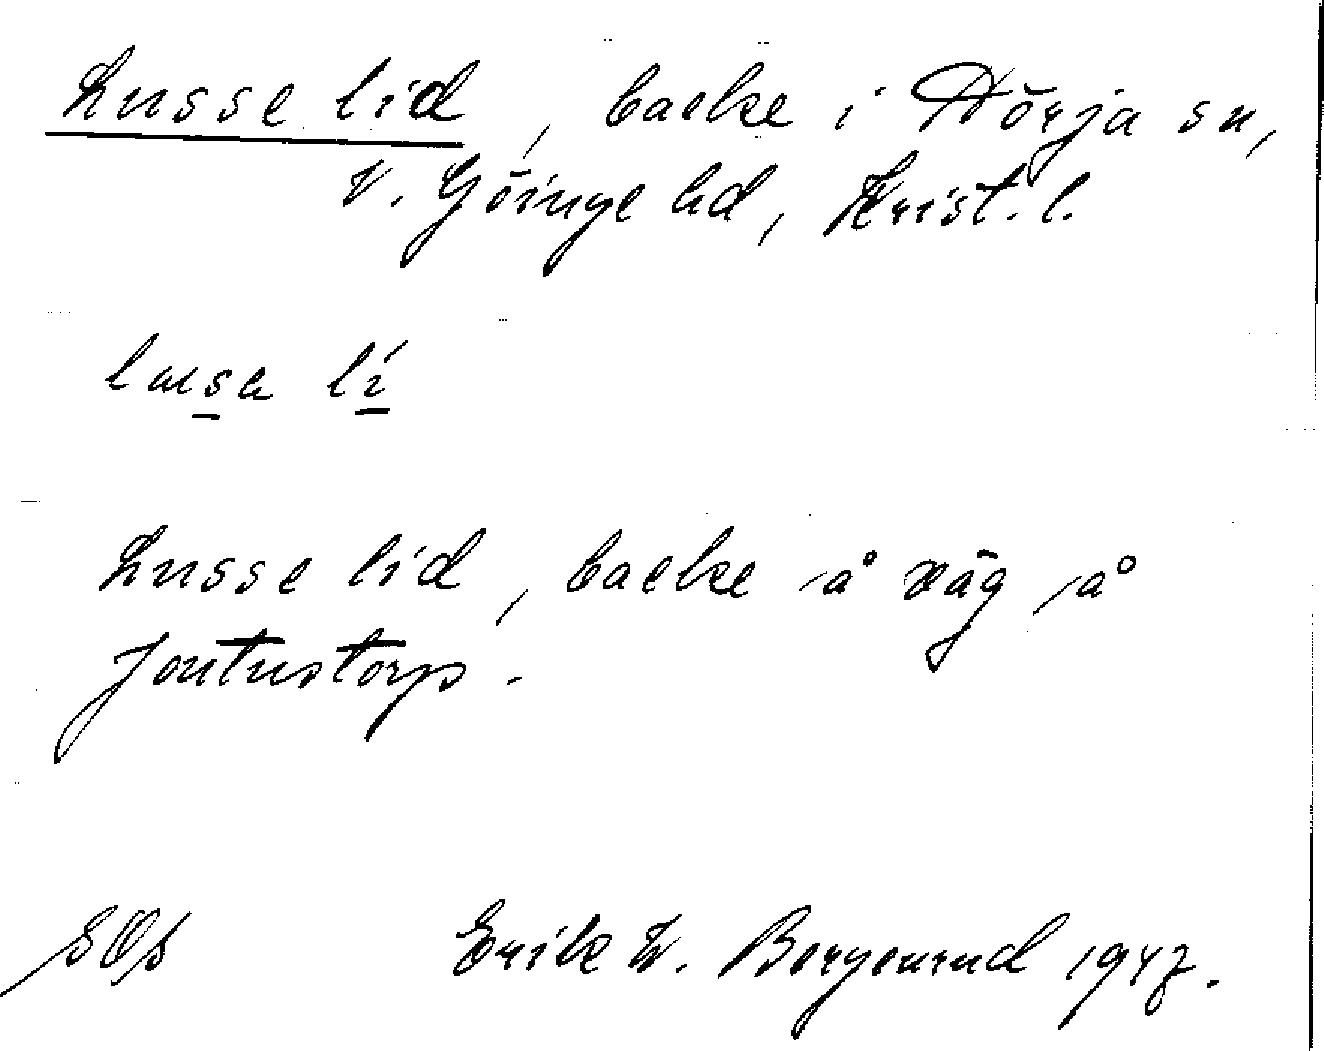 Lusse lid, backe i Nörja sn,
V. Göinge hd, Krist. l.
lusa lí
Lusse lid, backe å väg å
Jontustorp.
SOS Erik W. Bergenrud 1947.